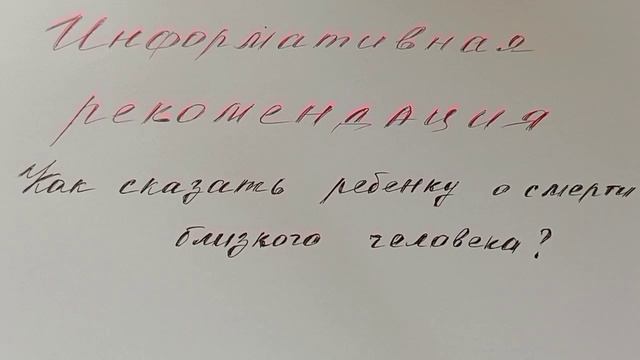 Информативная
рекомендация
Как сказать ребенку о смерти
близкого человека?